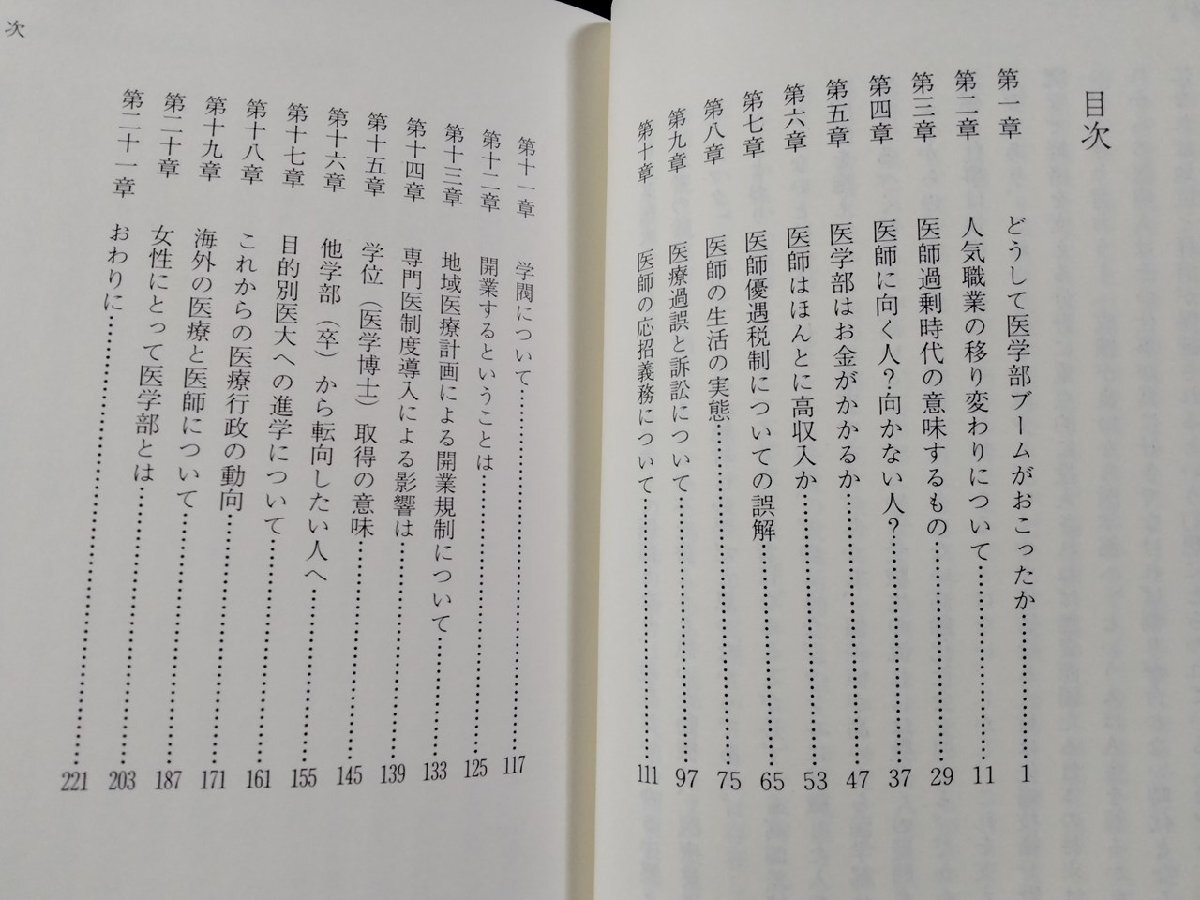 目次
第一章 どうして医学部ブームがおこったか……………1
第二章 人気職業の移り変わりについて……………11
第三章 医師過剰時代の意味するもの……………29
第四章 医師に向く人?向かない人?……………37
第五章 医学部はお金がかかるか……………47
第六章 医師はほんとに高収入か……………53
第七章 医師優遇税制についての誤解……………65
第八章 医師の生活の実態……………75
第九章 医療過誤と訴訟について……………97
第十章 医師の応招義務について……………111
次
第十一章 学閥について……………117
第十二章 開業するということは……………125
第十三章 地域医療計画による開業規制について……………133
第十四章 専門医制度導入による影響は……………139
第十五章 学位（医学博士）取得の意味……………145
第十六章 他学部（卒）から転向したい人へ……………155
第十七章 目的別医大への進学について……………161
第十八章 これからの医療行政の動向……………171
第十九章 海外の医療と医師について……………187
第二十章 女性にとって医学部とは……………203
第二十一章 おわりに……………221